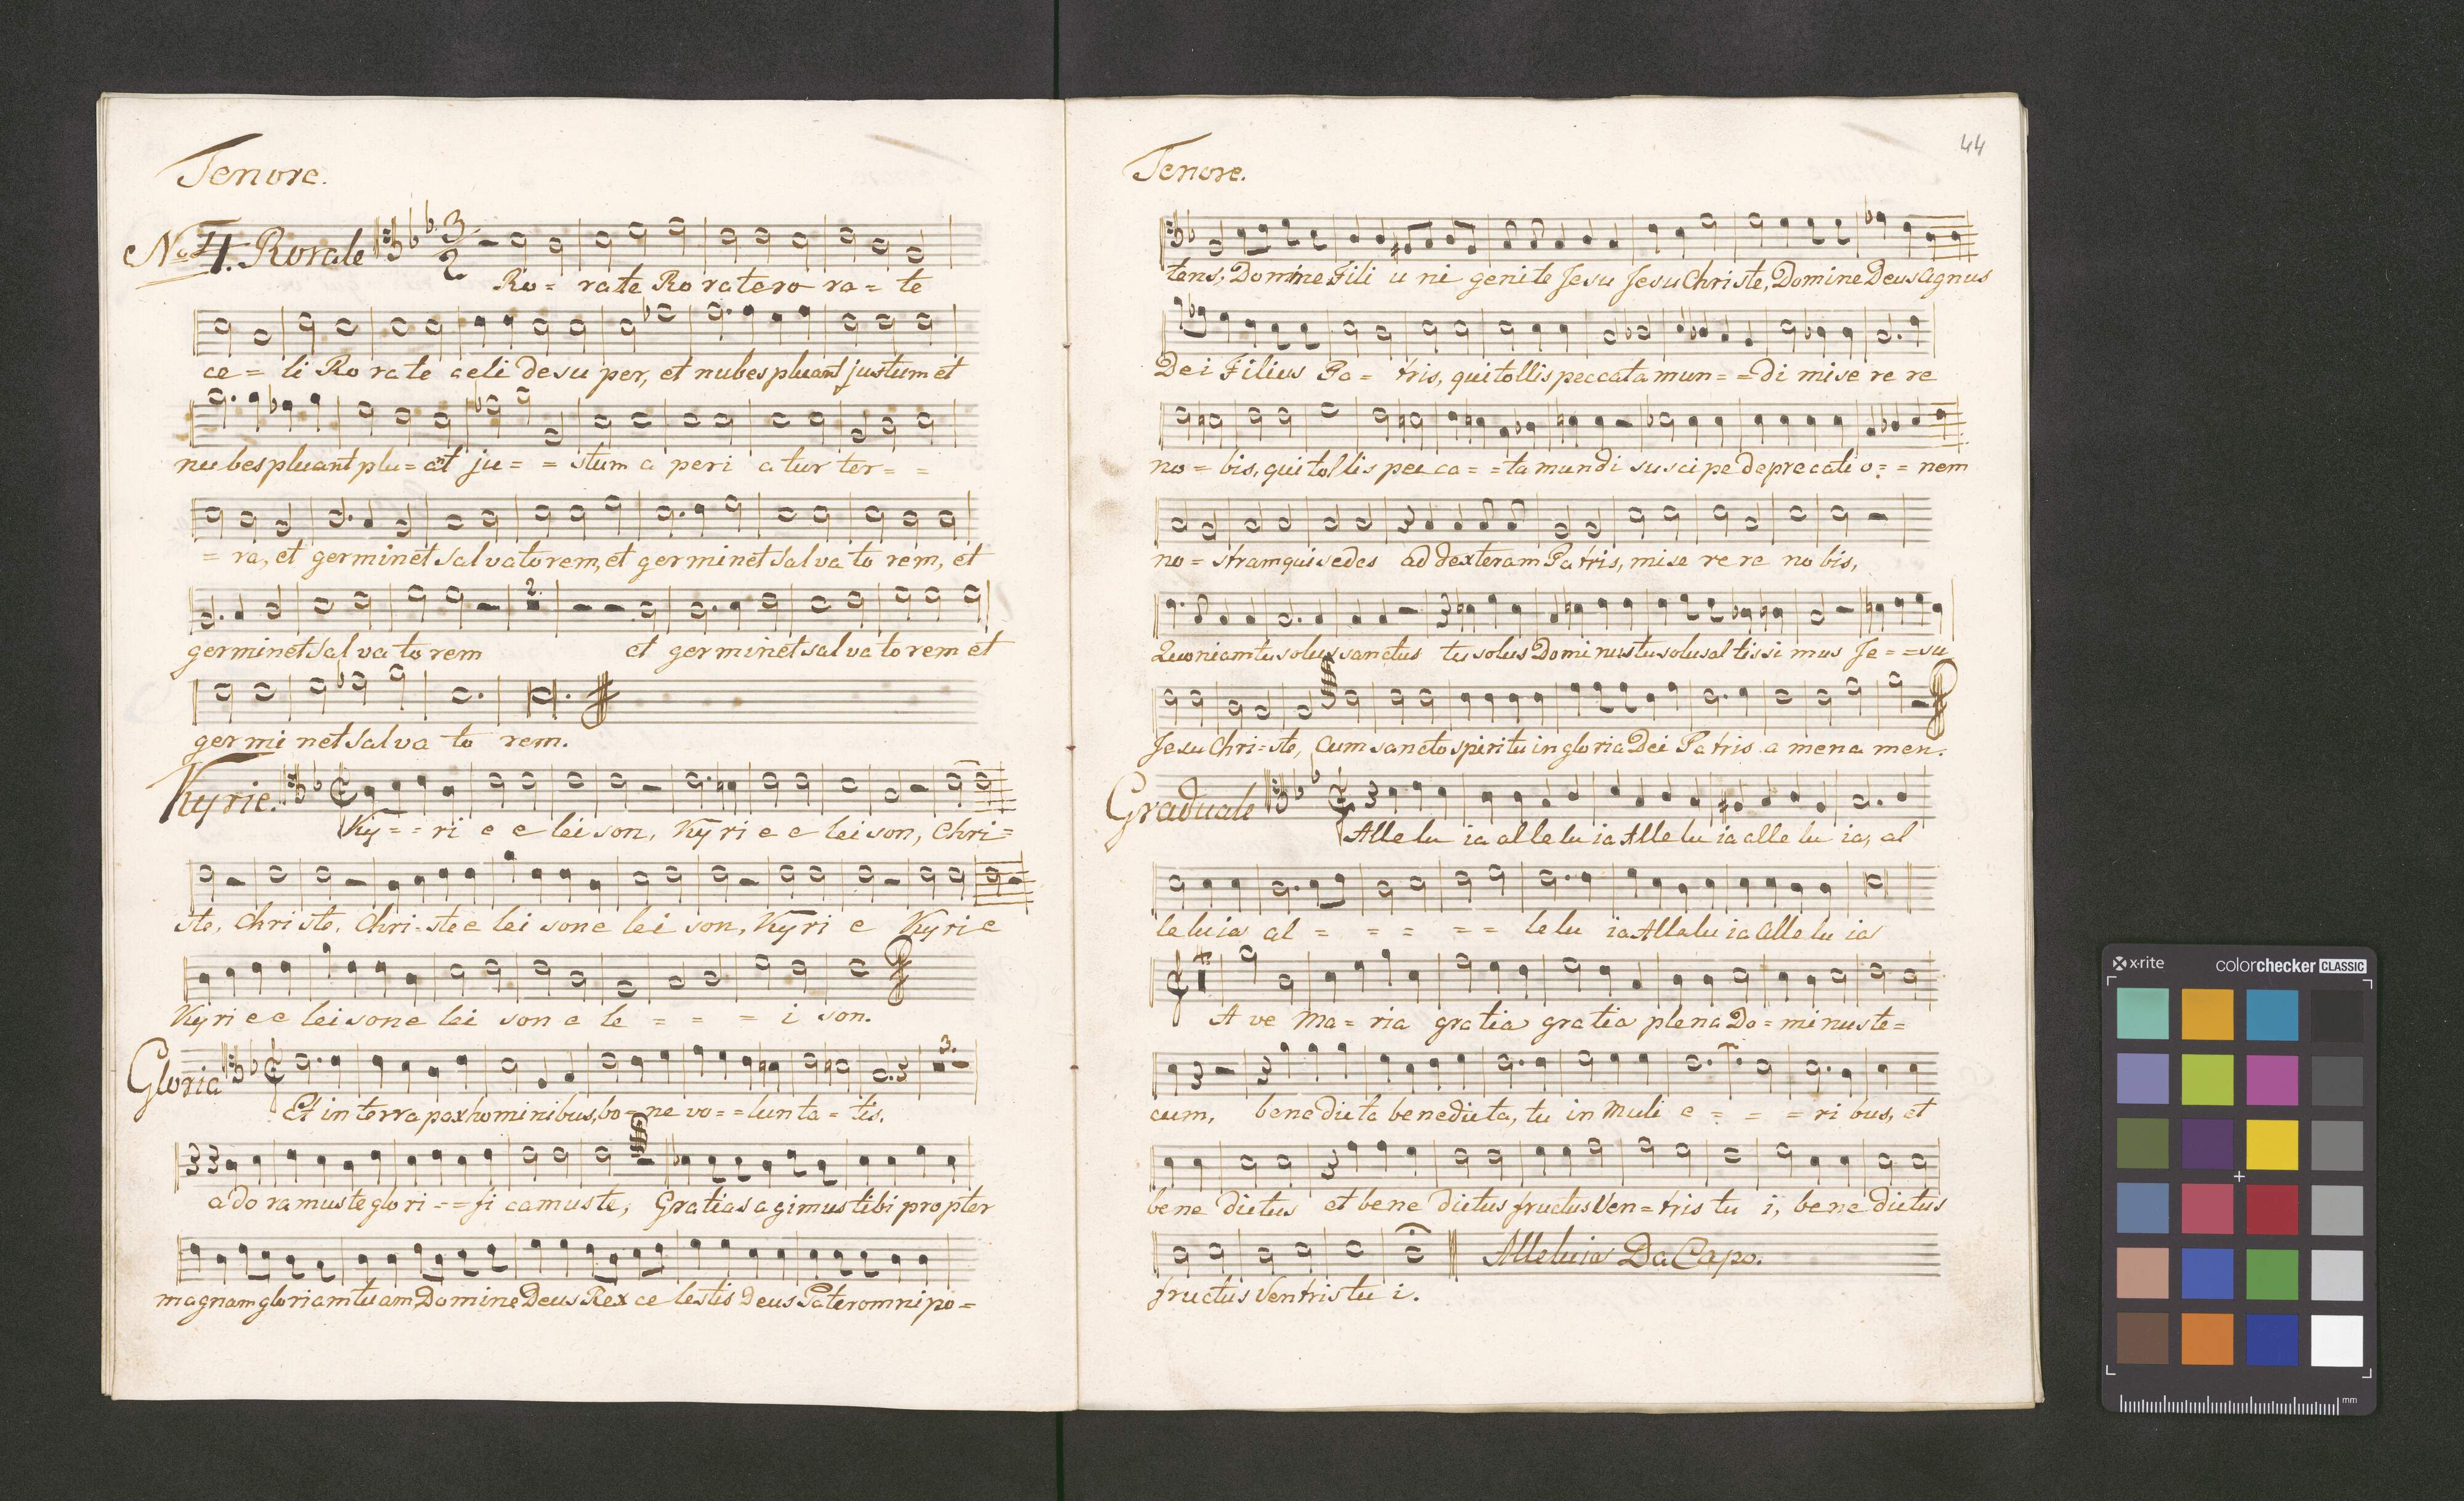 Tenore.
No. 4. Rorate
Ro = rate Ro rate ro ra = te
ce = li Ro rate celi desu per, et nubes pluant justum et
nubes pluant plu = ant ju = = stum a peri a tur ter = =
= ra, et germinet Sal vatorem, et germinet Sal va to rem, et
2.
germinet Sal va to rem et germinet sal va to rem et
germi net Sal va to rem.
Kyrie.
Ky = = ri e e lei son, Ky ri e e lei son, Chri =
ste, Christe, Chri = ste e lei son e lei son, Ky ri e Ky ri e
Ky ri e e lei son e lei son e le = = = i son.
Gloria
3.
Et in terra pax hominibus, bo = ne vo = = lun ta = tis.
ado ramus te glo ri = = fi camus te, Gratias agimus tibi propter
magnam gloriam tuam Domine Deus Rex ce lestis Deus Pater omnipo =
44
Tenore.
tens, Domine Fili u ni genite Jesu Jesu Christe, Domine Deus Agnus
Dei Filius Pa = tris, qui tollis peccata mun = = di mise re re
no = bis, qui tollis pec ca = = ta mundi suscipe deprecati o = = nem
no = stram qui sedes ad dexteram Patris, mise re re no bis,
Quoniam tu solus sanctus tu solus Dominus tu solus altissi mus Je = = su
Jesu Chri = ste, Cum sancto spiritu in gloria Dei Patris a men a men.
Graduale
Alle lu ia alle lu ia Alle lu ia alle lu ia, al
le luia al = = = = = le lu ia Allalu ia Alle lu ia
A ve Ma = ria gratia gratia plena Do = minus te =
cum, benedicta benedicta, tu in Muli e = = = ri bus, et
bene dictus et bene dictus fructus Ven = tris tu i, bene dictus
Alleluia Da Capo.
fructus Ventris tu i.
x-rite
colorchecker CLASSIC
mm